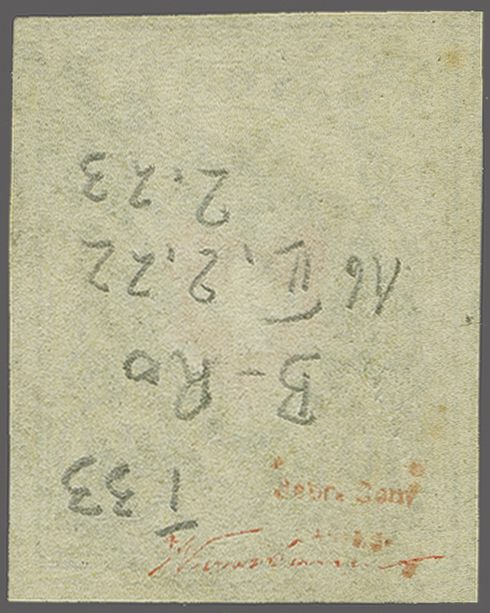 T 33
B - Ro
Ab II. 2.22
2.23
Gebr. Senf